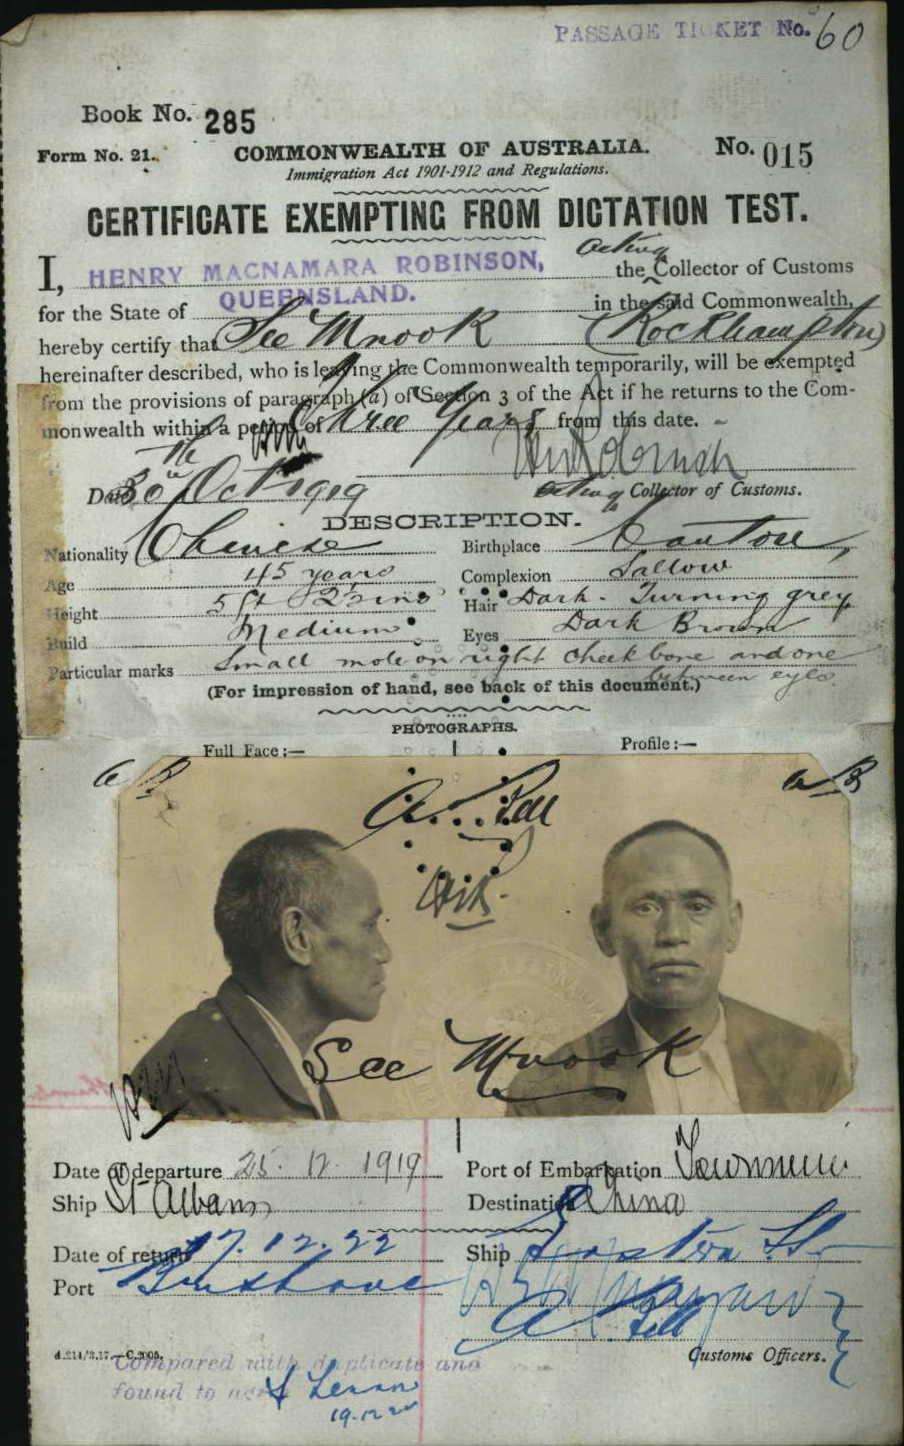 PASSAGE TICKET No. 60
Book No. 285
Form No. 21.
COMMONWEALTH OF AUSTRALIA.
No. 015
Immigration Act 1901-1912 and Regulations.
CERTIFICATE EXEMPTING FROM DICTATION TEST.
acting
I, HENRY MACNAMARA ROBINSON, the Collector of Customs
for the State of QUEENSLAND. in the said Commonwealth,
hereby certify that See Mnook (Rockhampton)
hereinafter described, who is leaving the Commonwealth temporarily, will be exempted
from the provisions of paragraph (a) of Section 3 of the Act if he returns to the Com-
monwealth within a period of three years from this date.
Date 30th Oct 1919 acting Collector of Customs.
DESCRIPTION.
Nationality Chinese Birthplace Canton,
Age 45 years Complexion Sallow
Height 5 ft 2½ ins Hair Dark - Turning grey
Build Medium Eyes Dark Brown
Particular marks Small mole on right cheek bone and one
between eyes.
(For impression of hand, see back of this document.)
PHOTOGRAPHS.
Full Face:— Profile:—
See Mnook
Date of departure 25. 12. 1919 Port of Embarkation
Ship St Albans Destination China
Date of return 17.12.22 Ship
Port Brisbane
Customs Officers.
Compared with duplicate and
found to agree
19.12.22